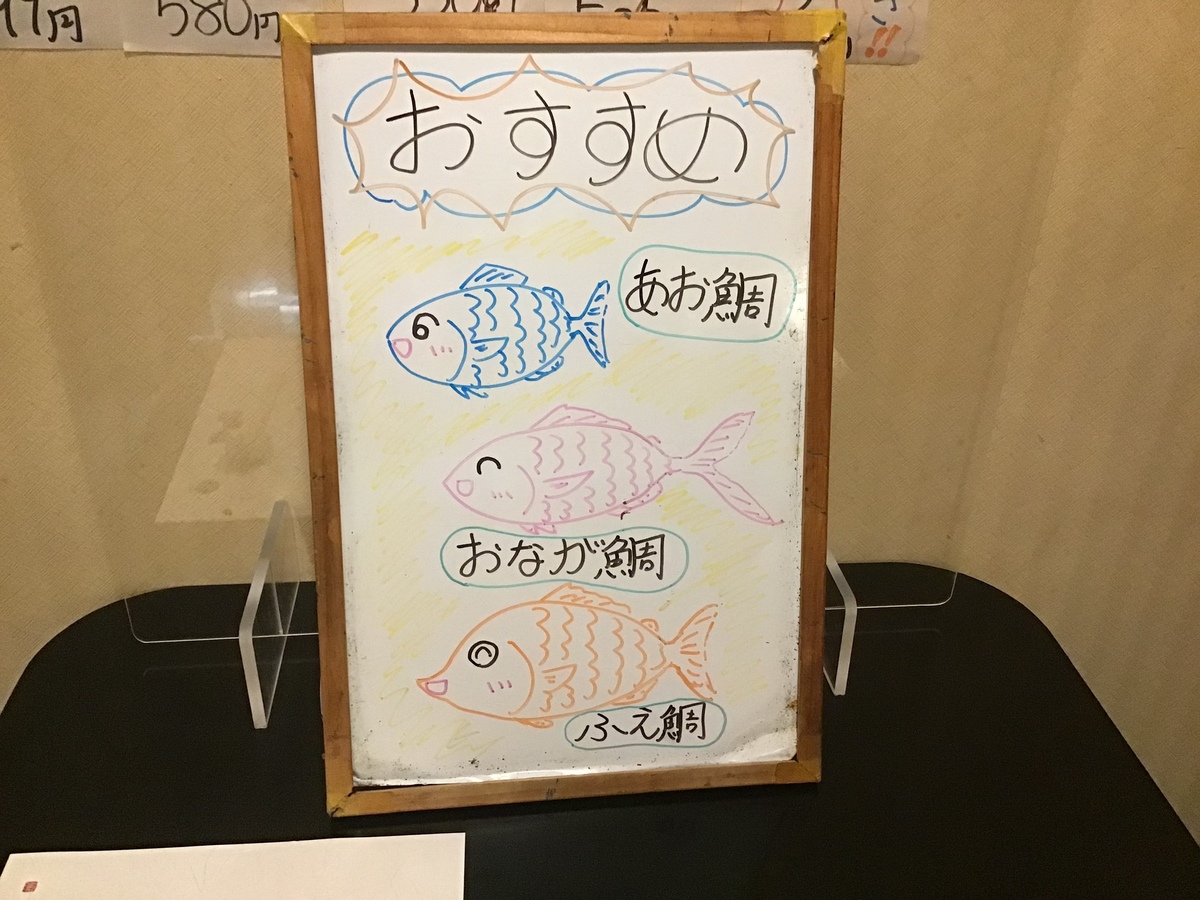 580円
おすすめ
あお鯛
おなが鯛
ふえ鯛